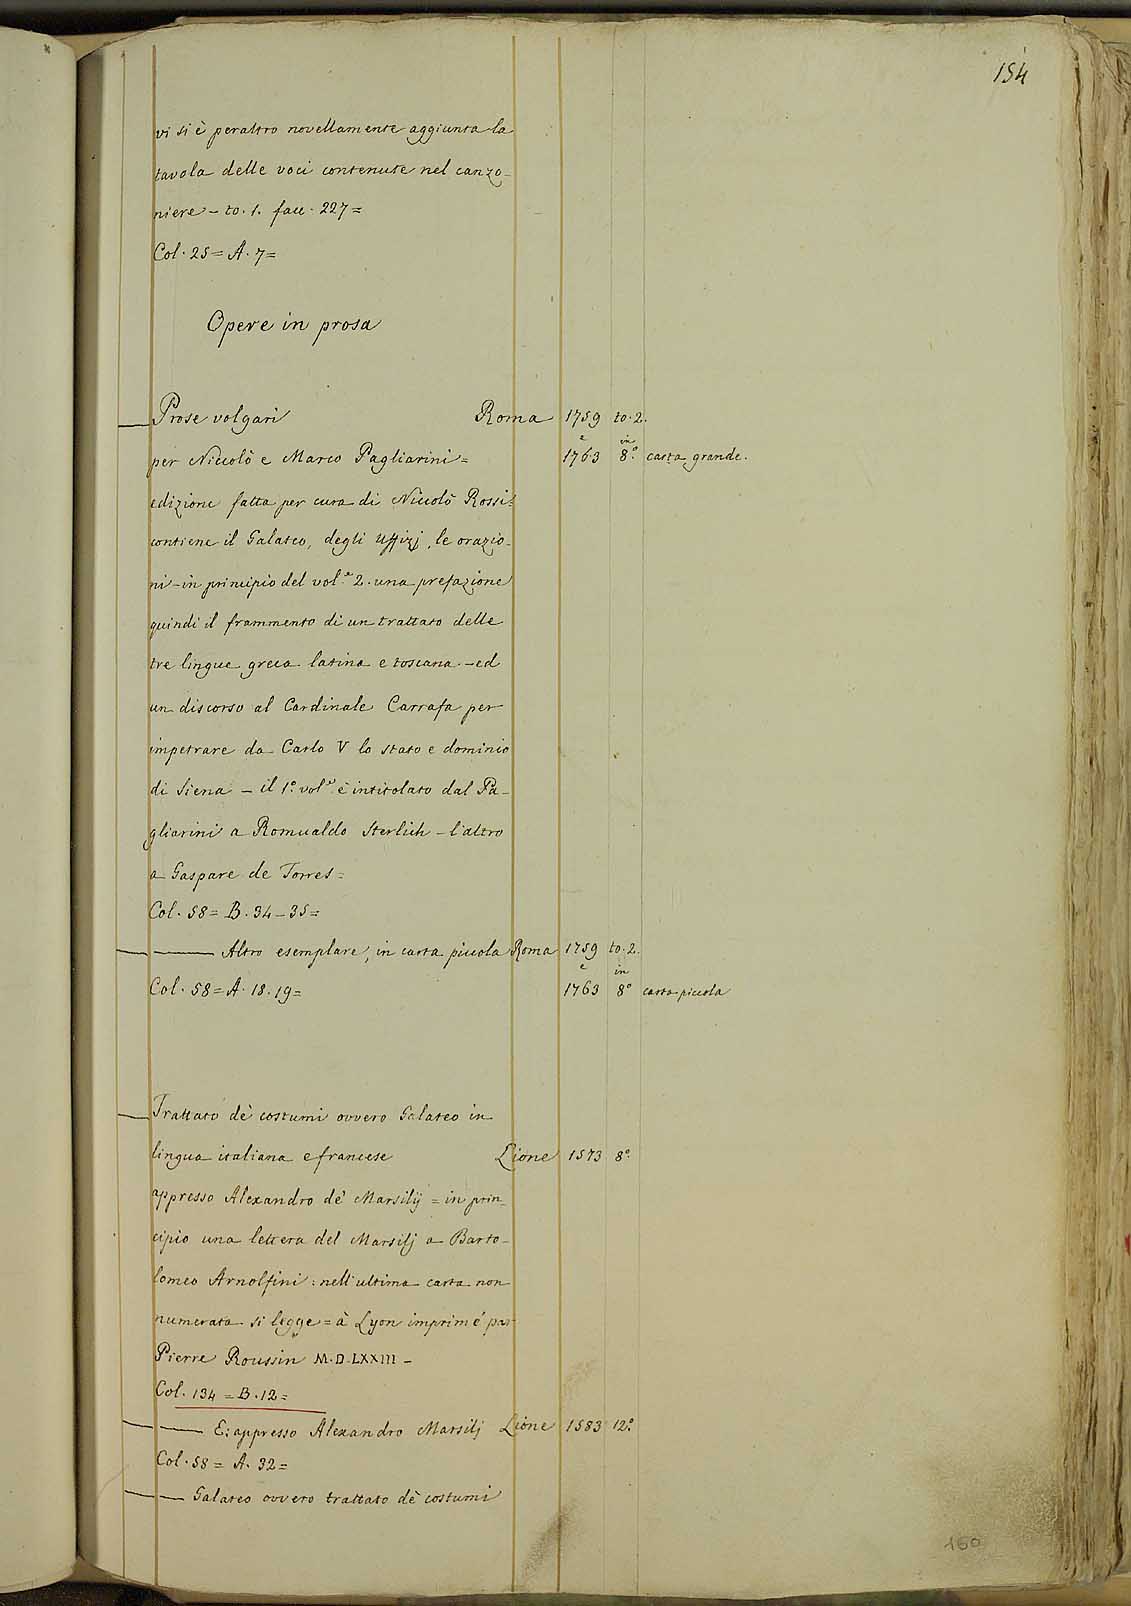 154
vi si è peraltro novellamente aggiunta la
tavola delle voci contenute nel canzo-
niere - to. 1. facc. 227 =
Col. 25 = A. 7 =
Opere in prosa
Prose volgari Roma 1759 to. 2.
per Niccolò e Marco Pagliarini = e 1763 in 8.° carta grande.
edizione fatta per cura di Niccolò Rossi:
contiene il Galateo, degli Uffizj, le orazio-
ni - in principio del vol.e 2. una prefazione
quindi il frammento di un trattato delle
tre lingue greca latina e toscana. - ed
un discorso al Cardinale Carrafa per
impetrare da Carlo V lo stato e dominio
di Siena - il 1.° vol.e è intitolato dal Pa-
gliarini a Romualdo Sterlich - l'altro
a Gaspare de Torres =
Col. 58 = B. 34 - 35 =
Altro esemplare, in carta piccola Roma 1759 to. 2.
Col. 58 = A. 18. 19 = e 1763 in 8° carta piccola
Trattato dè costumi ovvero Galateo in
lingua italiana e francese Lione 1573 8°.
appresso Alexandro de' Marsilij = in prin-
cipio una lettera del Marsilj a Barto-
lomeo Arnolfini: nell'ultima carta non
numerata si legge = à Lyon imprimé par
Pierre Roussin M.D.LXXIII -
Col. 134 = B. 12 =
E: appresso Alexandro Marsilj Lione 1583 12°.
Col. 58 = A. 32 =
Galateo ovvero trattato dè costumi
160